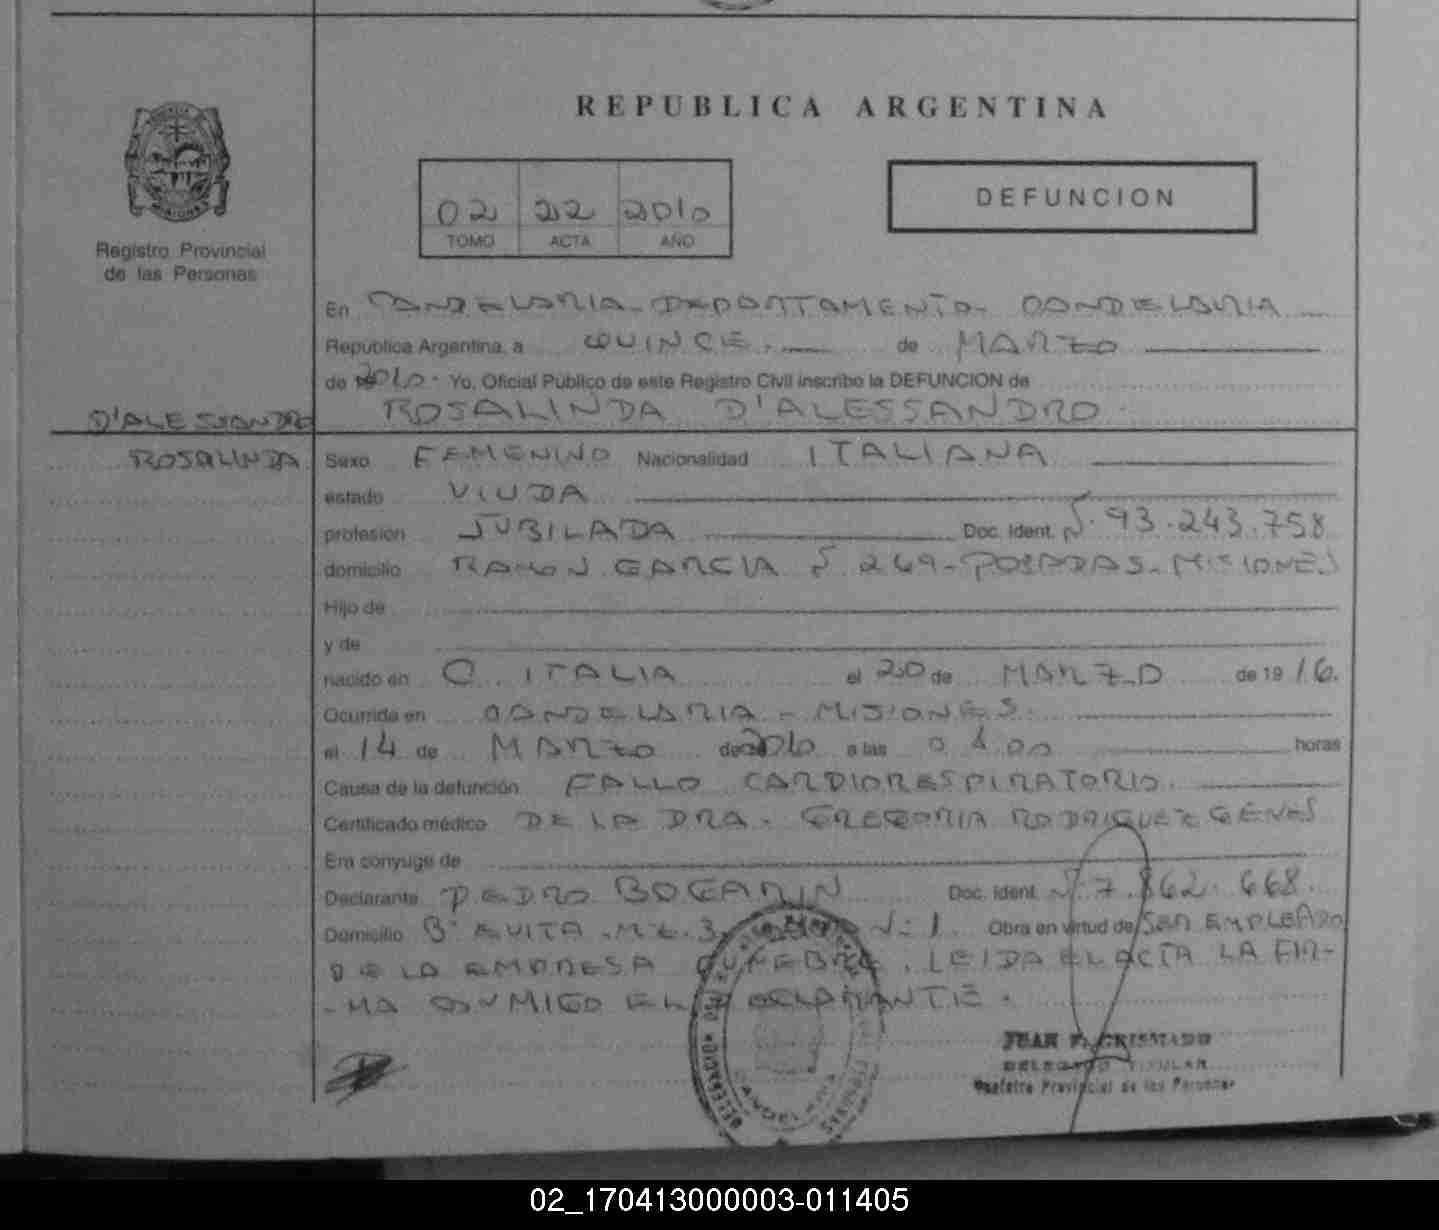 REPUBLICA ARGENTINA
02 22 2010
TOMO ACTA AÑO
DEFUNCION
MISIONES
Registro Provincial
de las Personas
En CANDELARIA - DEPARTAMENTO - CANDELARIA
República Argentina, a QUINCE. de MARZO
de 2010. Yo, Oficial Público de este Registro Civil inscribo la DEFUNCION de
D'ALESSANDRO ROSALINDA D'ALESSANDRO.
ROSALINDA Sexo FEMENINO Nacionalidad ITALIANA
estado VIUDA
profesión JUBILADA Doc. Ident. Nº 93.243.758
domicilio RAMON GARCIA Nº 269 - POSADAS - MISIONES
Hijo de
y de
nacido en ITALIA el 20 de MARZO de 19 16.
Ocurrida en CANDELARIA - MISIONES.
el 14 de MARZO de 2010 a las 04.00 horas
Causa de la defunción FALLO CARDIORESPIRATORIO.
Certificado médico DE LA DRA. GREGORIA RODRIGUEZ GENES
Era conyuge de
Declarante PEDRO BOGARIN Doc. Ident. Nº 7.862.668.
Domicilio Bº EVITA - MZ. 3 Nº 1. Obra en virtud de SER EMPLEADO
DE LA EMPRESA FUNEBRE. LEIDA EL ACTA LA FIR-
-MA CONMIGO EL DECLARANTE.
JUAN F. CRISMADO
DELEGADO TITULAR
Registro Provincial de las Personas
CANDELARIA
02_170413000003-011405